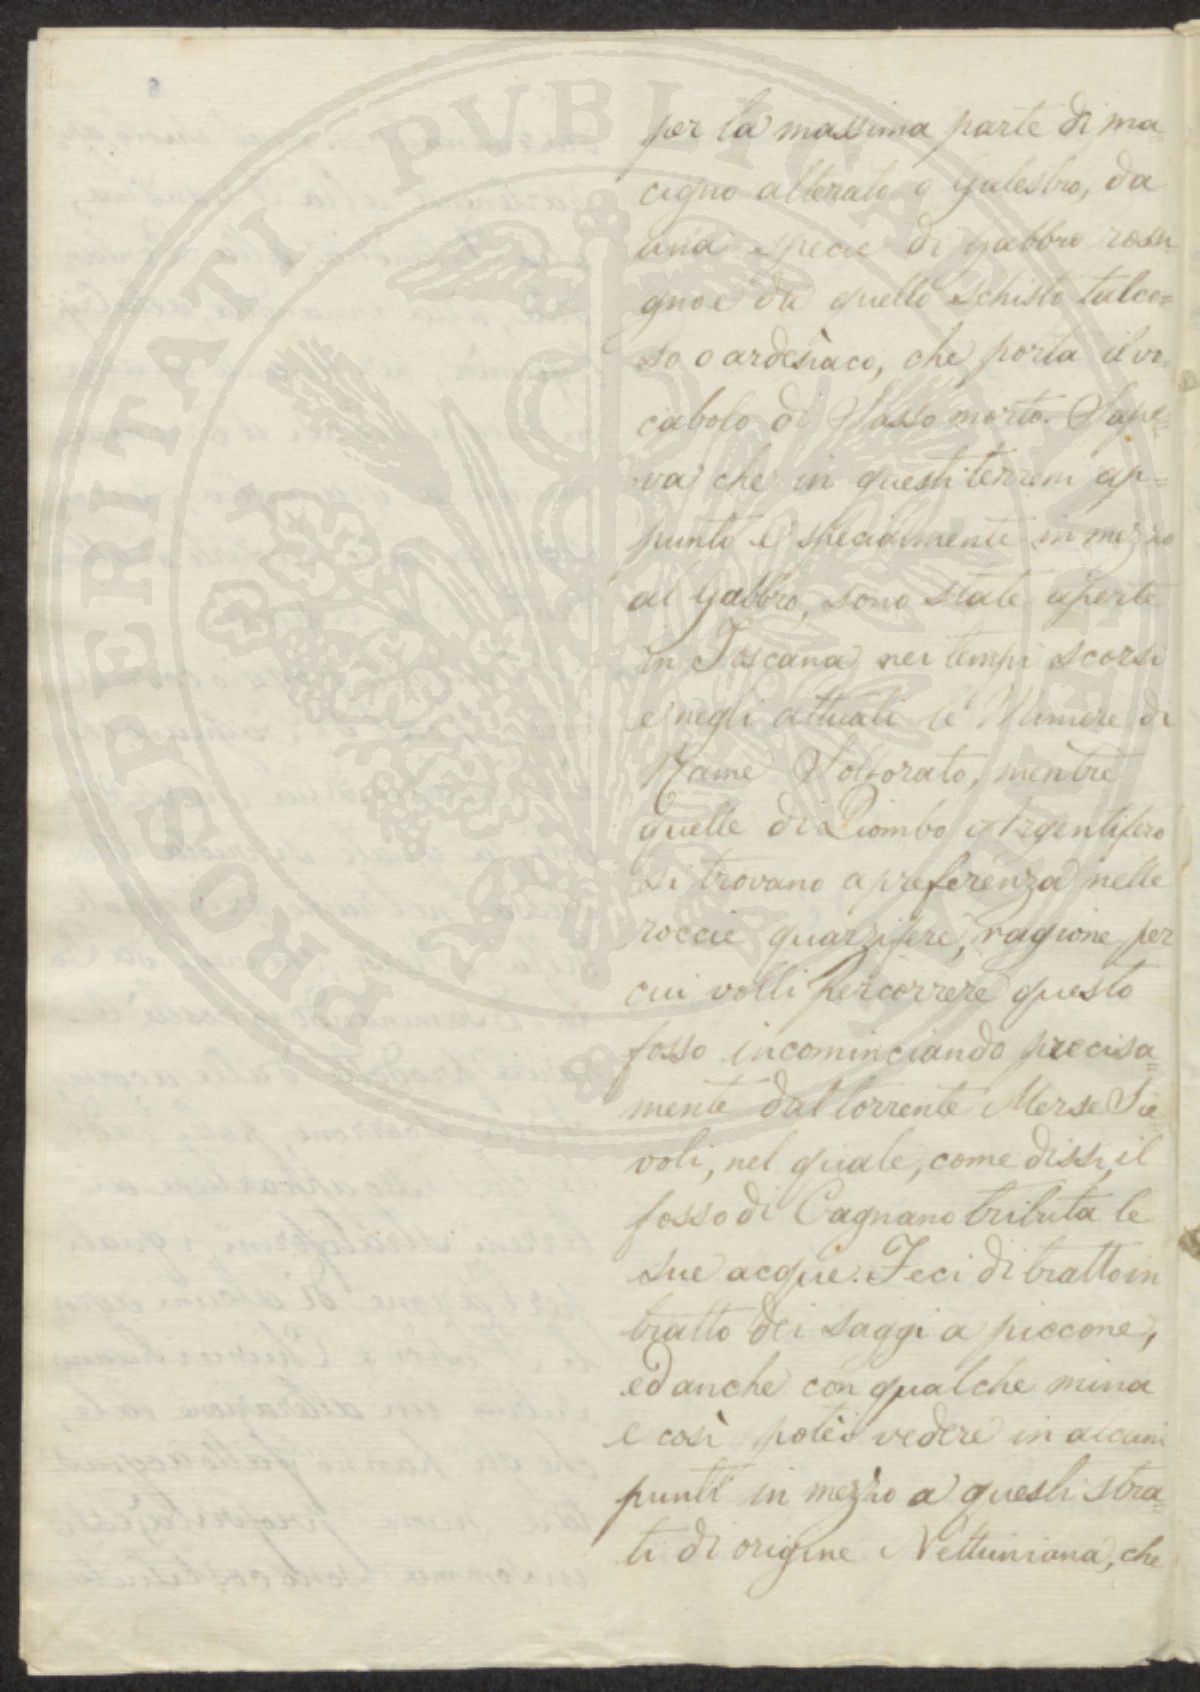 PROSPERITATI PVBLICAE
per la massima parte di ma-
cigno alterato o galestro, da
una specie di gabbro rossi
gno e da quello schisto talco=
so o ardesiaco, che porta il vo-
cabolo di Sasso morto. Sape=
va che in questi terreni ap=
punto e specialmente in mezzo
al Gabbro, sono state aperte
in Toscana nei tempi scorsi
e negli attuali le Miniere di
Rame Solforato, mentre
quelle di Piombo Argentifero
si trovano a preferenza nelle
roccie quarzifere, ragione per
cui volli percorrere questo
fosso incominciando precisa=
mente dal torrente Merse Sie=
voli, nel quale, come dissi, il
fosso di Cagnano tributa le
sue acque. Feci di tratto in
tratto dei saggi a piccone,
ed anche con qualche mina
e così potei vedere in alcuni
punti in mezzo a questi stra=
ti di origine Nettuniana, che